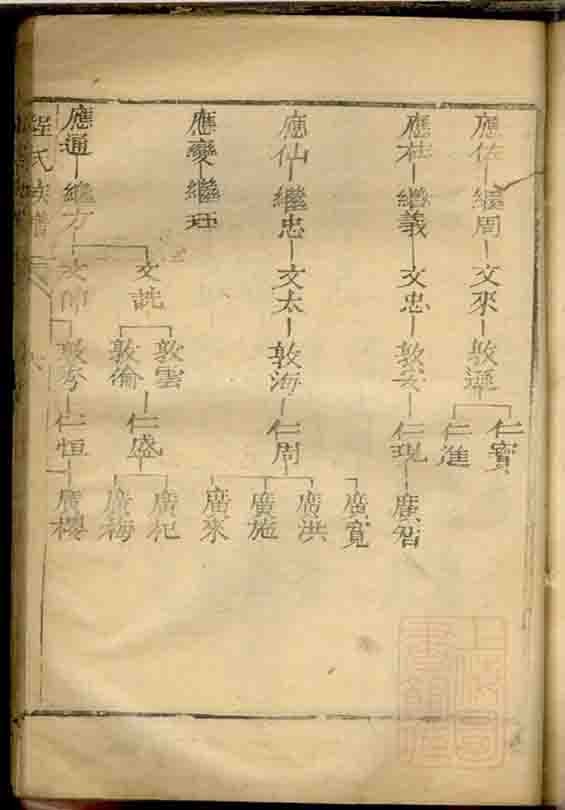 應佐 繼周 文來 敦遜 仁寳
仁進
應桂 繼義 文忠 仁現 廣智
應仙 繼忠 文太 敦海 仁周 廣寬
廣洪
廣施
廣來
應變 繼珏
應通 繼方 文誥 敦雲
敦倫 仁盛 廣杞
廣梅
文帥 仁恒 廣櫻
程氏族譜